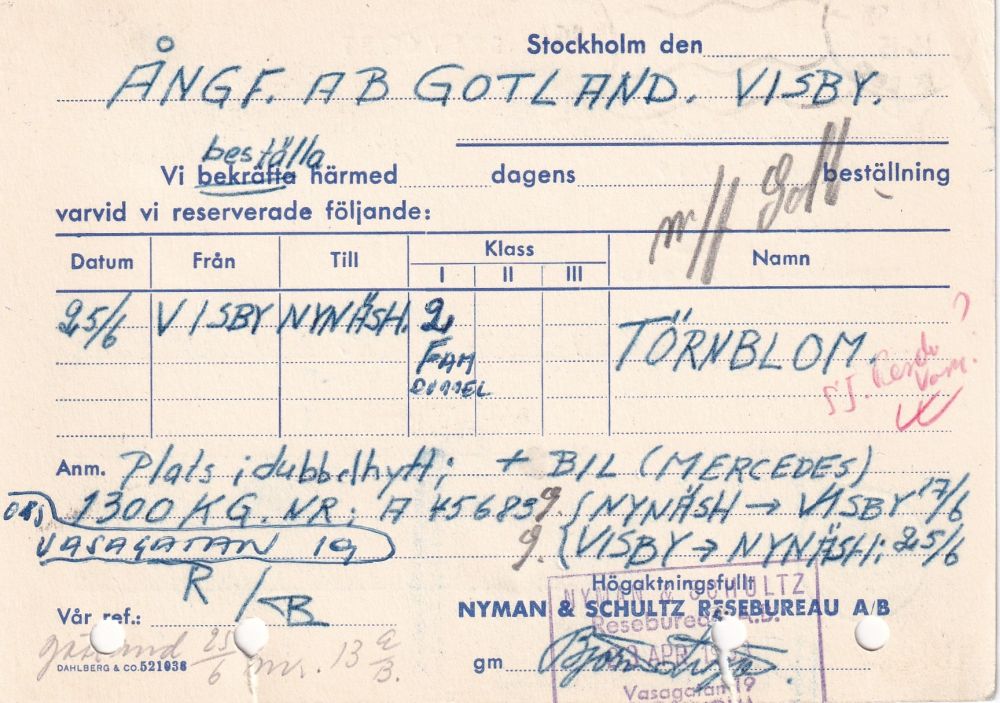 Stockholm den
ÅNGF. AB GOTLAND. VISBY.
beställa
Vi bekräfta härmed dagens beställning
varvid vi reserverade följande:
m/f Gotl
Datum Från Till Klass Namn
I II III
25/6 VISBY NYNÄSH. 2 TÖRNBLOM.
FAM
DUBBEL
SJ.
?
Anm. Plats i dubbelhytt; + BIL (MERCEDES)
OBS 1300 KG. NR: A 45683 9. { NYNÄSH → VISBY 17/6
VASAGATAN 19 9. { VISBY → NYNÄSH: 25/6
R/B
Högaktningsfullt
Vår ref.: NYMAN & SCHULTZ RESEBUREAU A/B
NYMAN & SCHULTZ
Resebureau A.B.
APR
Vasagatan 19
gm
Gotland 25/6 nr. 13 a/B.
DAHLBERG & CO. 521036